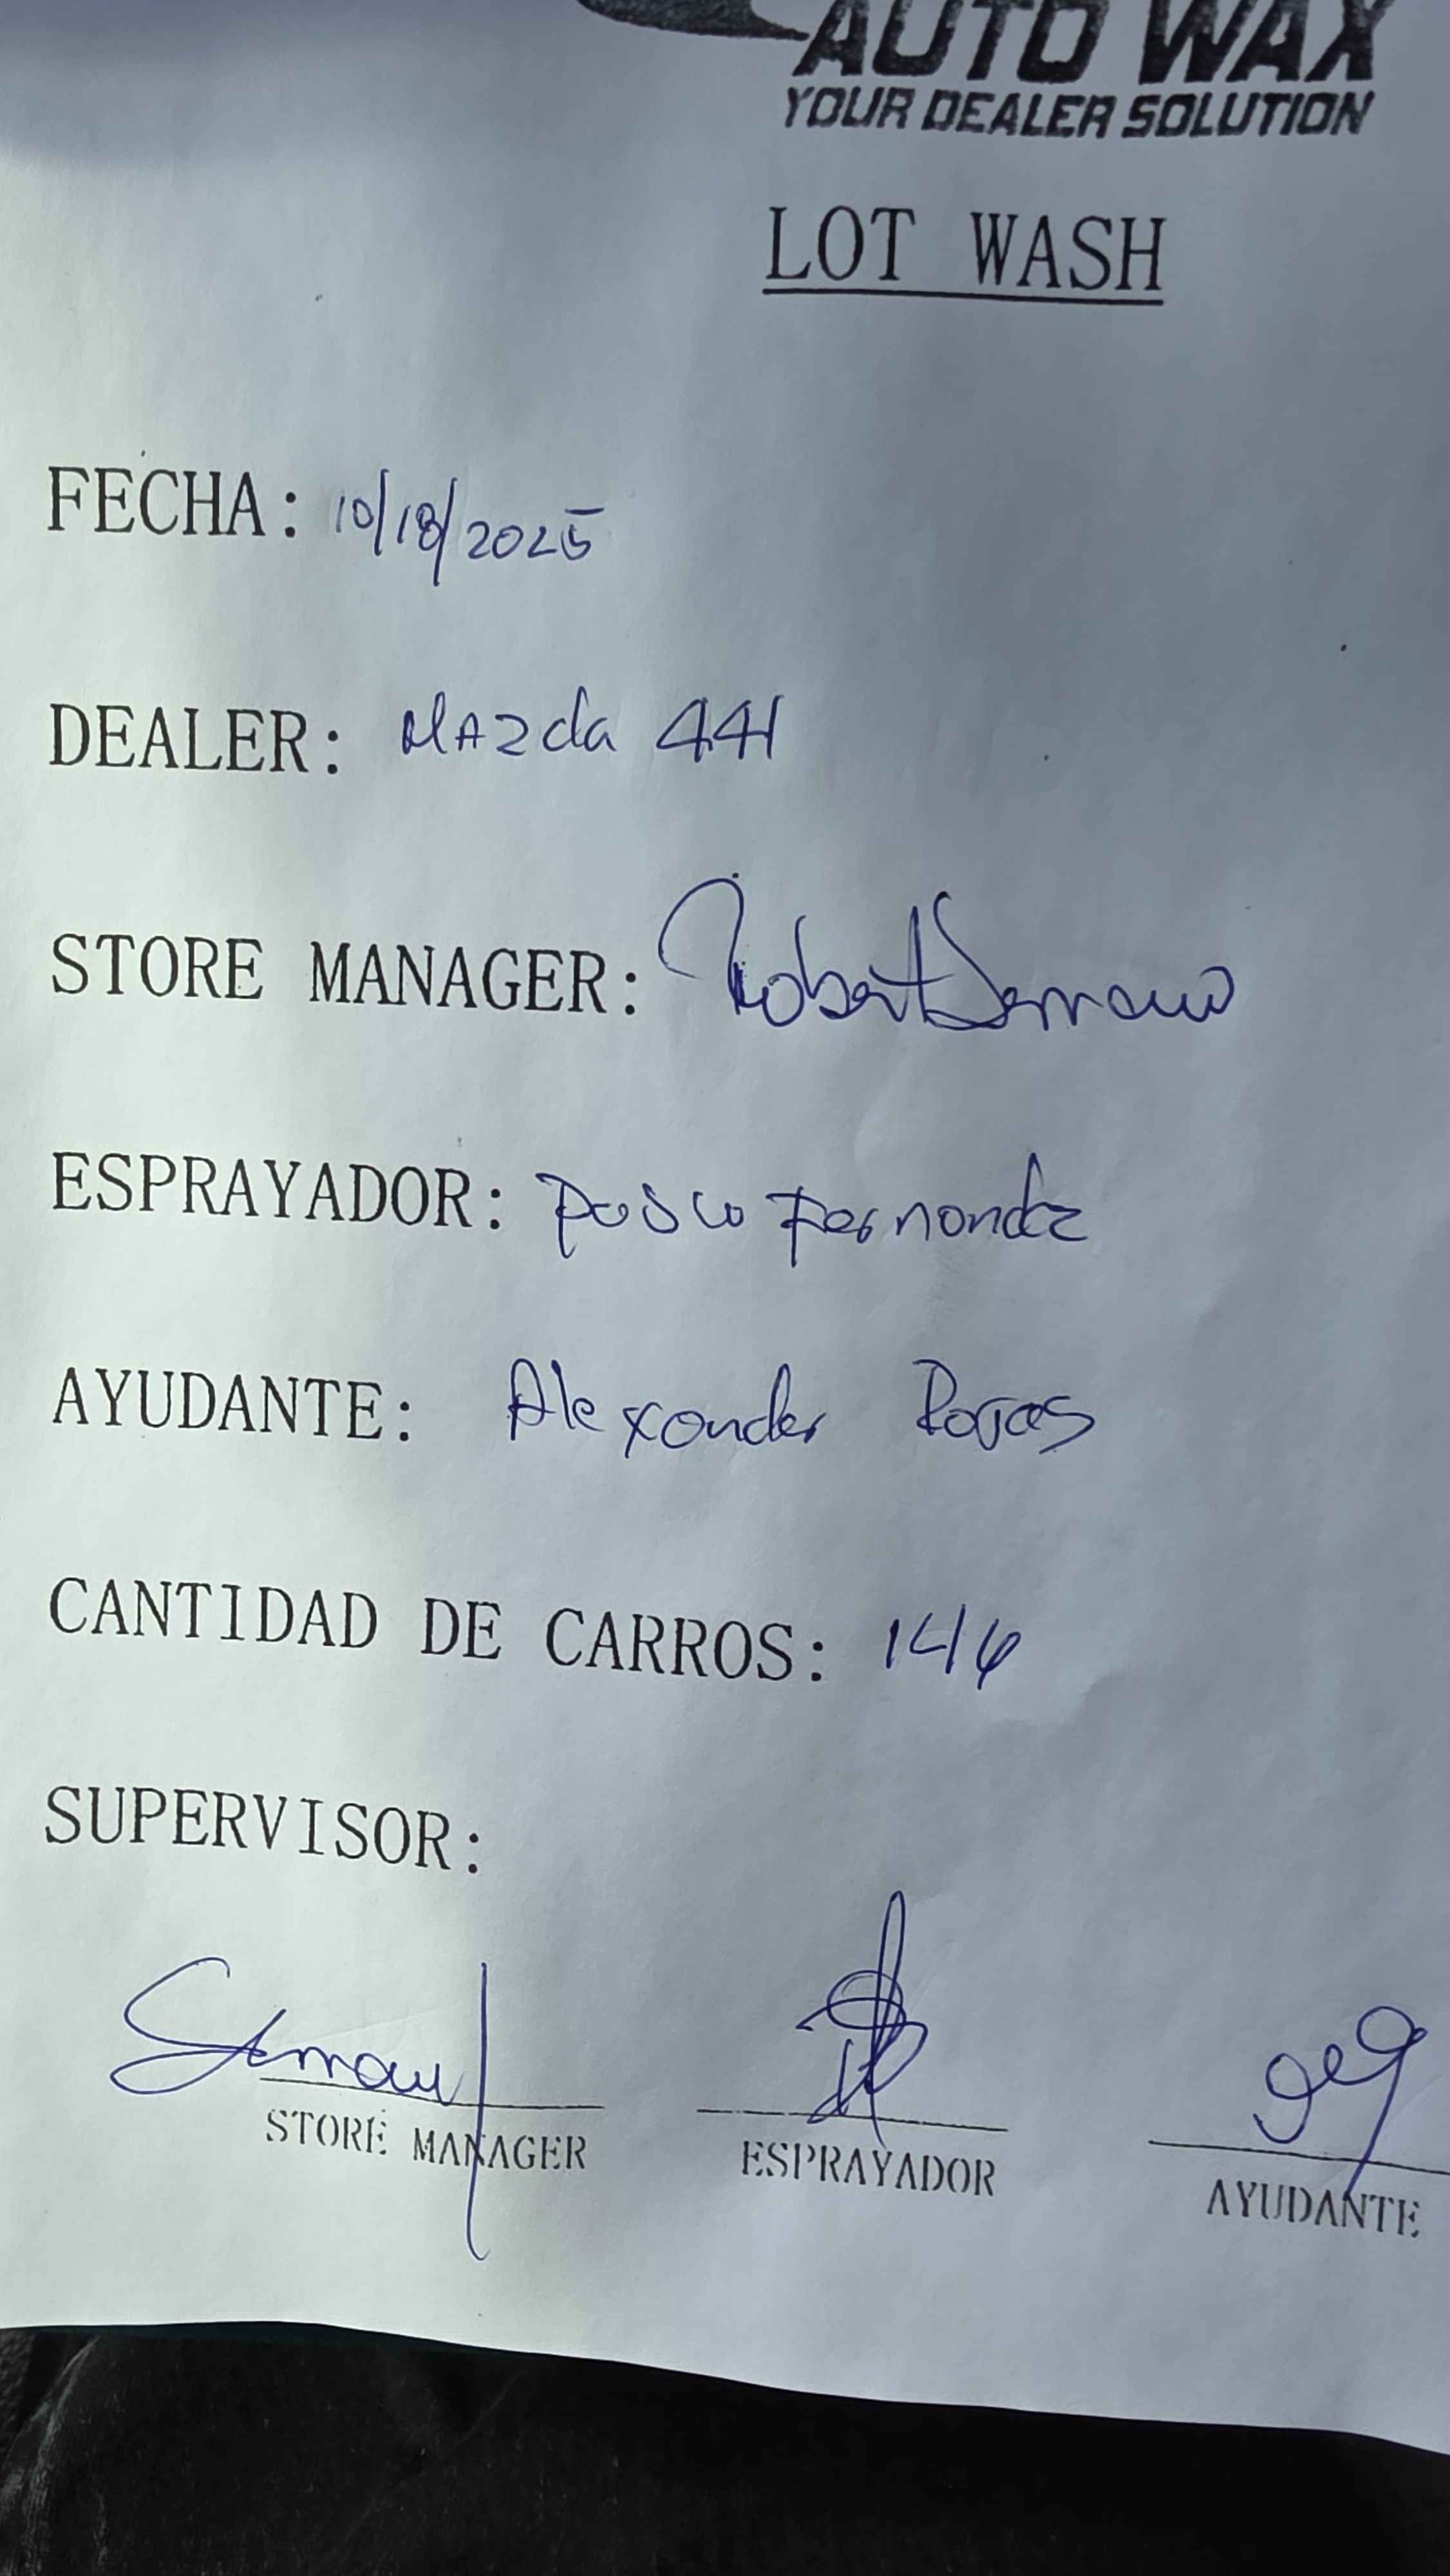 AUTO WAX
YOUR DEALER SOLUTION
LOT WASH
FECHA: 10/18/2025
DEALER: Mazda 441
STORE MANAGER: Robert Serrano
ESPRAYADOR: Fernandz
AYUDANTE: Alexander Rojas
CANTIDAD DE CARROS: 146
SUPERVISOR:
STORE MANAGER ESPRAYADOR AYUDANTE